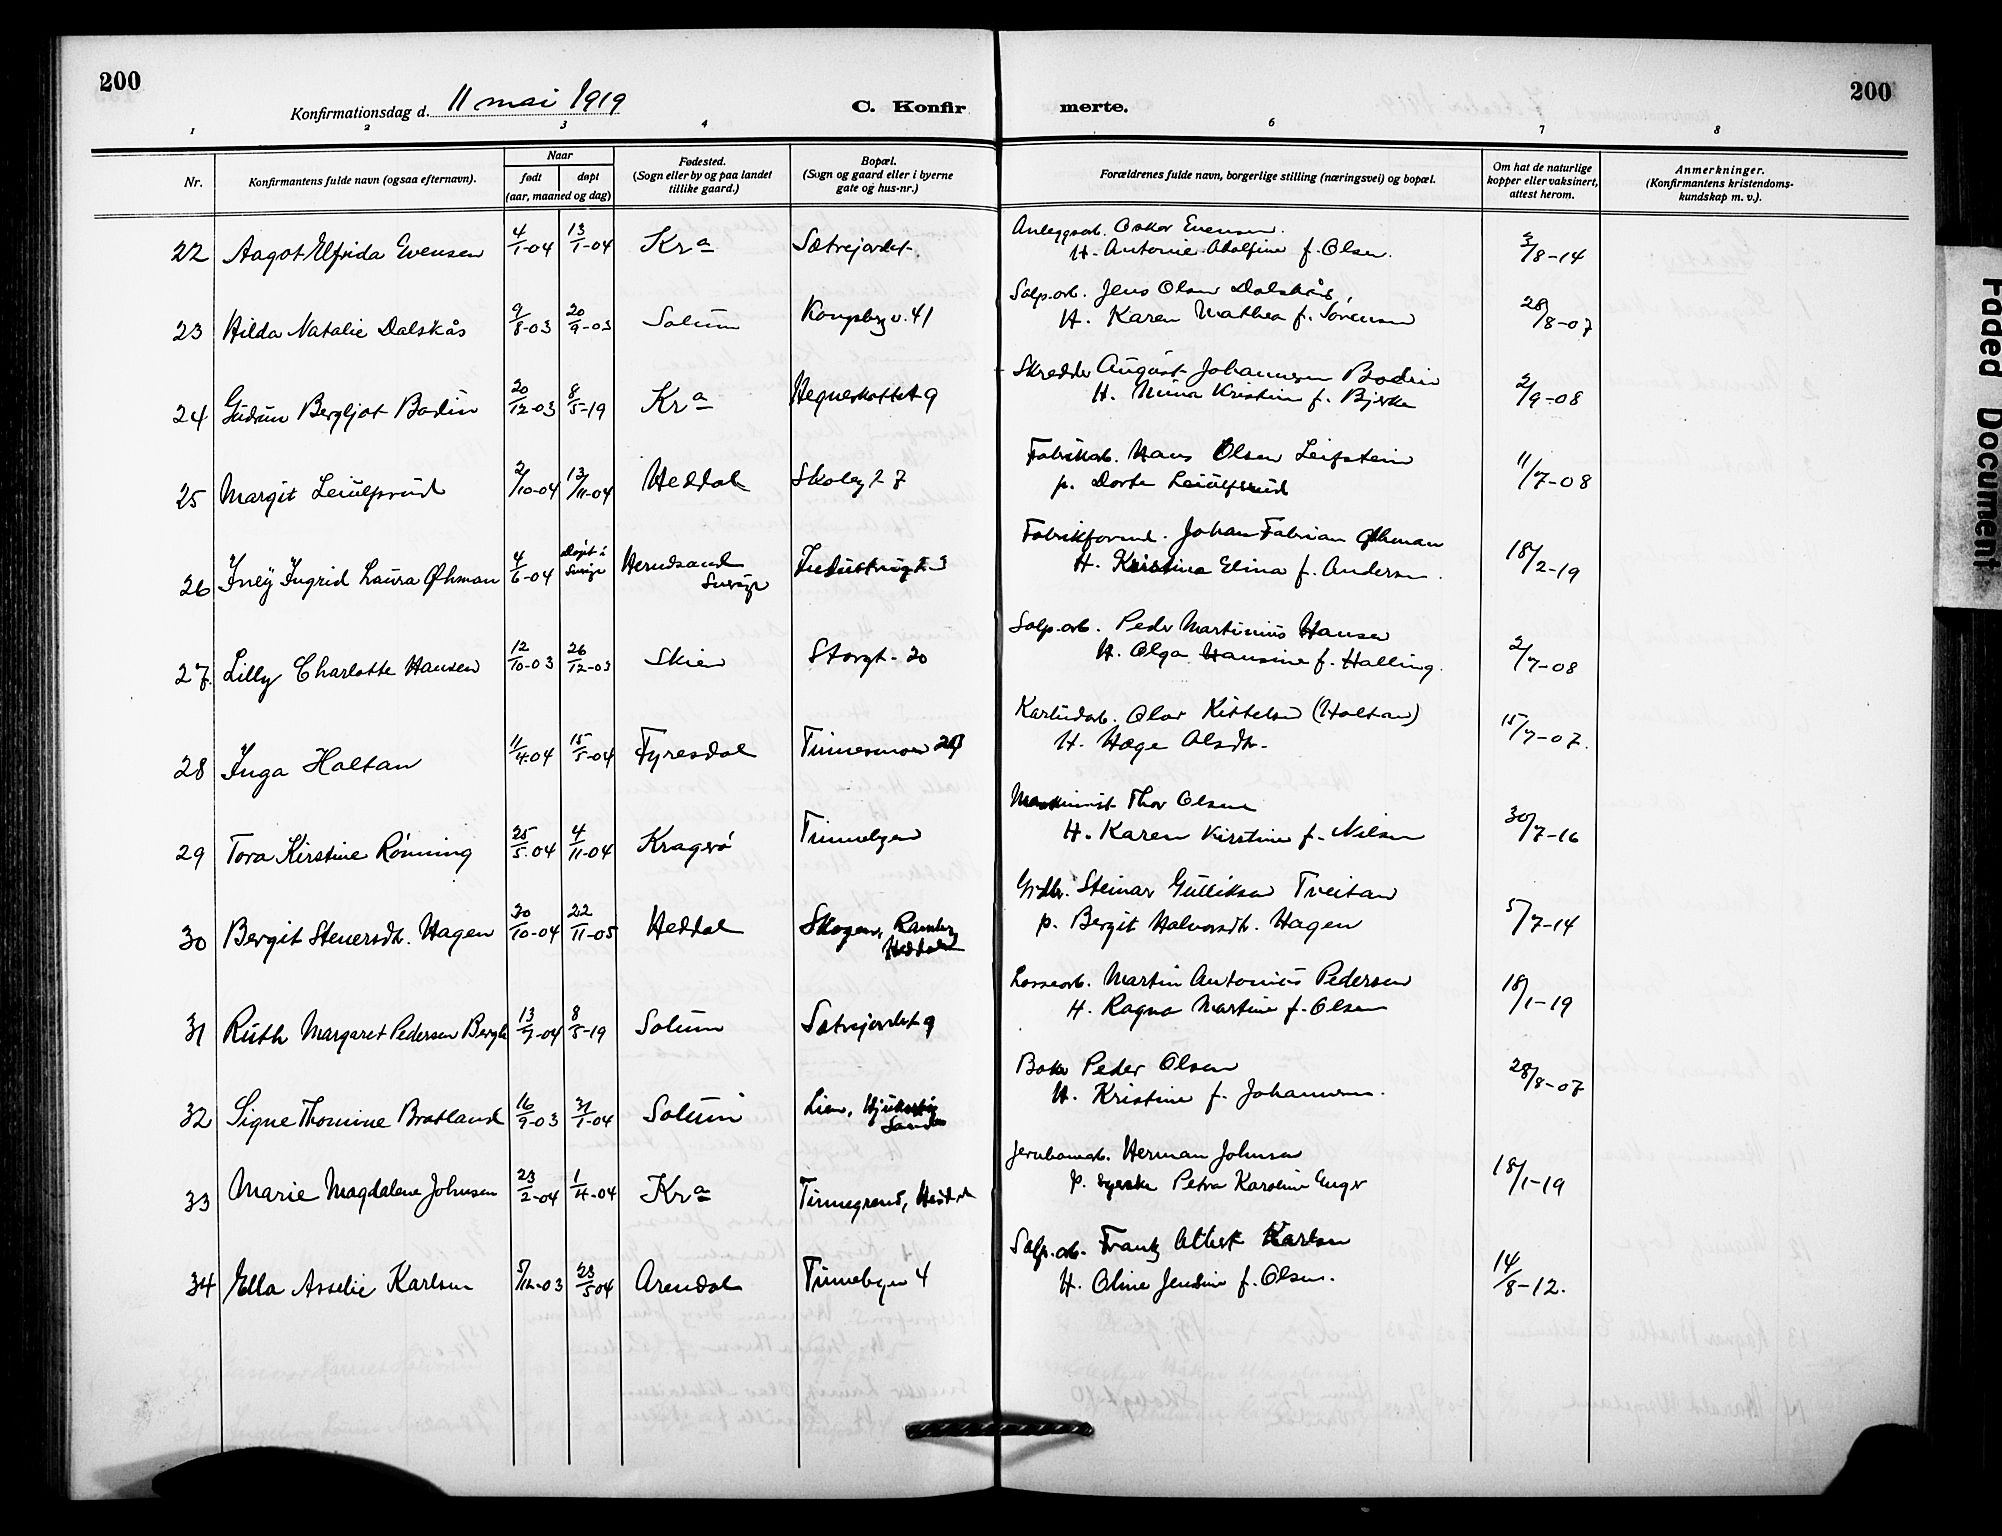 200
Konfirmationsdag d. 11 mai 1919
C. Konfirmerte.
200
1 2 3 4 6 7 8
Nr.
Konfirmantens fulde navn (ogsaa efternavn).
Naar
født døpt
(aar, maaned og dag)
Fødested.
(Sogn eller by og paa landet
tillike gaard.)
Bopæl.
(Sogn og gaard eller i byerne
gate og hus-nr.)
Forældrenes fulde navn, borgerlige stilling (næringsvei) og bopæl.
Om hat de naturlige
kopper eller vaksinert,
attest herom.
Anmerkninger.
(Konfirmantens kristendoms-
kundskap m. v.).
22 Aagot Elfrida Evensen 4/1-04 13/1-04 Kra Sætrejordet. Anleggsarb. Oskar Evensen.
H. Antonie Adolfine f. Olsen. 3/8-14
23 Hilda Natalie Dalskås 9/8-03 20/9-03 Solum Kongsbg v. 41 Salp.arb. Jens Olsen Dalskås,
H. Karen Mathea f. Sørensen 28/8-07
24 Gudrun Bergljot Bodin 20/12-03 8/5-19 Kra 9 Skredder August Johannsen Bodin
H. Mina Kristine f. Bjerke 2/9-08
25 Margit Leiulfsrud 2/10-04 13/11-04 Heddal Skoleg 27 Fabrikarb. Hans Olsen Leifstein
p. Dorte Leiulfsrud 11/7-08
26 Ingrid Laura Øhman 4/6-04 døpt i Sverige Hernösand
Sverige Industrigt. 3 Fabrikform. Johan Fabian Øhman
H. Kristina Elina f. Andersen. 18/2-19
27. Lilly Charlotte Hansen 12/10-03 26/12-03 Skien Storgt. 20 Salp.arb. Peder Martinius Hansen
H. Olga Hansine f. Halling. 2/7-08
28 Inga Holtan 11/4-04 15/5-04 Fyresdal Tinnesmoen Karbidarb. Olav Kittelsen (Holtan)
H. Hæge Olsdtr. 15/7-07.
29 Tora Kirstine Rønning 25/5-04 4/11-04 Kragerø Tinnebyen Maskinist Thor Olsen
H. Karen Kirstine f. Nilsen 30/7-16
30 Bergit Steinersdtr. Hagen 30/10-04 22/11-05 Heddal Skogen, Ramberg
Heddal Grdbr. Steinar Gulliksen Tveitan
p. Bergit Halvorsdtr. Hagen 5/7-14
31 Ruth Margaret Pedersen Bergli 13/7-04 8/5-19 Solum Sætrejordet 9 Lossearb. Martin Antonius Pedersen
H. Ragna Martine f. Olsen 18/1-19
32 Signe Thomine Bratland 16/9-03 31/1-04 Solum Lien, Hjuksebø
Sandes Baker Peder Olsen
H. Kristine f. Johannesen. 28/8-07
33 Marie Magdalene Johnsen 23/2-04 1/4-04 Kra Tinnegrend, Heddal Jernbanearb. Herman Johnsen
p. syerske Petra Karoline Enger 18/1-19
34 Ella Asselie Karlsen 5/12-03 23/5-04 Arendal Tinnebyen 4 Salp.arb. Frantz Albert Karlsen
H. Oline Jensine f. Olsen. 14/8-12.
Faded Document